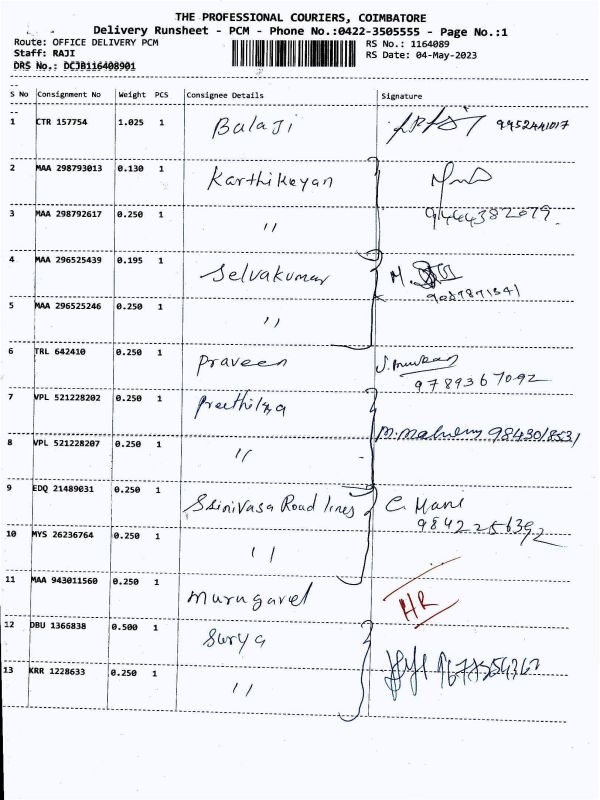 THE PROFESSIONAL COURIERS, COIMBATORE
Delivery Runsheet - PCM - Phone No.:0422-3505555 - Page No.:1
Route: OFFICE DELIVERY PCM RS No.: 1164089
Staff: RAJI RS Date: 04-May-2023
DRS No.: DCJB116408901
S No Consignment No Weight PCS Consignee Details Signature
1 CTR 157754 1.025 1 Balaji 9952441017
2 MAA 298793013 0.130 1 Karthikeyan
3 MAA 298792617 0.250 1 " 9444382079.
4 MAA 296525439 0.195 1 Selvakumar M.
5 MAA 296525246 0.250 1 "
6 TRL 642410 0.250 1 Praveen
9789367092
7 VPL 521228202 0.250 1 Preethi
8 VPL 521228207 0.250 1 " 9843018531
9 EDQ 21489031 0.250 1 Srinivasa Road lines C. Mani
9842256392
10 MYS 26236764 0.250 1 "
11 MAA 943011560 0.250 1 Murugavel HR
12 DBU 1366838 0.500 1 Surya
13 KRR 1228633 0.250 1 "